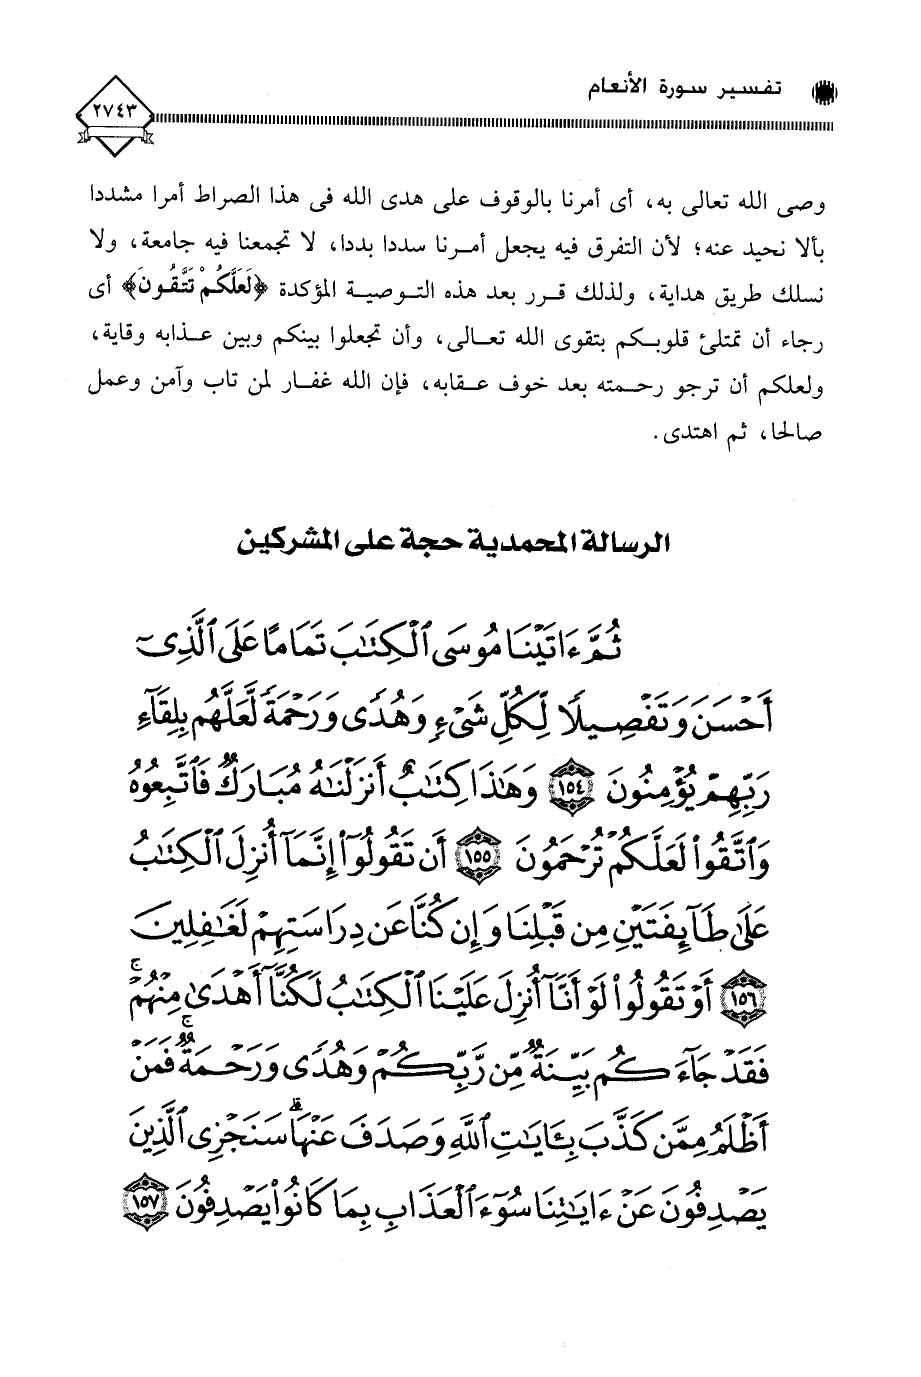 تفسير سورة الأنعام
٢٧٤٣
وصى الله تعالى به، أى أمرنا بالوقوف على هدى الله فى هذا الصراط أمرا مشددا
بألا نحيد عنه؛ لأن التفرق فيه يجعل أمرنا سددا بددا، لا تجمعنا فيه جامعة، ولا
نسلك طريق هداية، ولذلك قرر بعد هذه التوصية المؤكدة ﴿لَعَلَّكُمْ تَتَّقُونَ﴾ أى
رجاء أن تمتلئ قلوبكم بتقوى الله تعالى، وأن تجعلوا بينكم وبين عذابه وقاية،
ولعلكم أن ترجو رحمته بعد خوف عقابه، فإن الله غفار لمن تاب وآمن وعمل
صالحا، ثم اهتدى.
الرسالة المحمدية حجة على المشركين
ثُمَّ ءَاتَيْنَا مُوسَى ٱلْكِتَٰبَ تَمَامًا عَلَى ٱلَّذِىٓ
أَحْسَنَ وَتَفْصِيلًا لِّكُلِّ شَىْءٍ وَهُدًى وَرَحْمَةً لَّعَلَّهُم بِلِقَآءِ
رَبِّهِمْ يُؤْمِنُونَ ١٥٤ وَهَٰذَا كِتَٰبٌ أَنزَلْنَٰهُ مُبَارَكٌ فَٱتَّبِعُوهُ
وَٱتَّقُوا۟ لَعَلَّكُمْ تُرْحَمُونَ ١٥٥ أَن تَقُولُوٓا۟ إِنَّمَآ أُنزِلَ ٱلْكِتَٰبُ
عَلَىٰ طَآئِفَتَيْنِ مِن قَبْلِنَا وَإِن كُنَّا عَن دِرَاسَتِهِمْ لَغَٰفِلِينَ
١٥٦ أَوْ تَقُولُوا۟ لَوْ أَنَّآ أُنزِلَ عَلَيْنَا ٱلْكِتَٰبُ لَكُنَّآ أَهْدَىٰ مِنْهُمْ ۚ
فَقَدْ جَآءَكُم بَيِّنَةٌ مِّن رَّبِّكُمْ وَهُدًى وَرَحْمَةٌ ۚ فَمَنْ
أَظْلَمُ مِمَّن كَذَّبَ بِـَٔايَٰتِ ٱللَّهِ وَصَدَفَ عَنْهَا ۗ سَنَجْزِى ٱلَّذِينَ
يَصْدِفُونَ عَنْ ءَايَٰتِنَا سُوٓءَ ٱلْعَذَابِ بِمَا كَانُوا۟ يَصْدِفُونَ ١٥٧